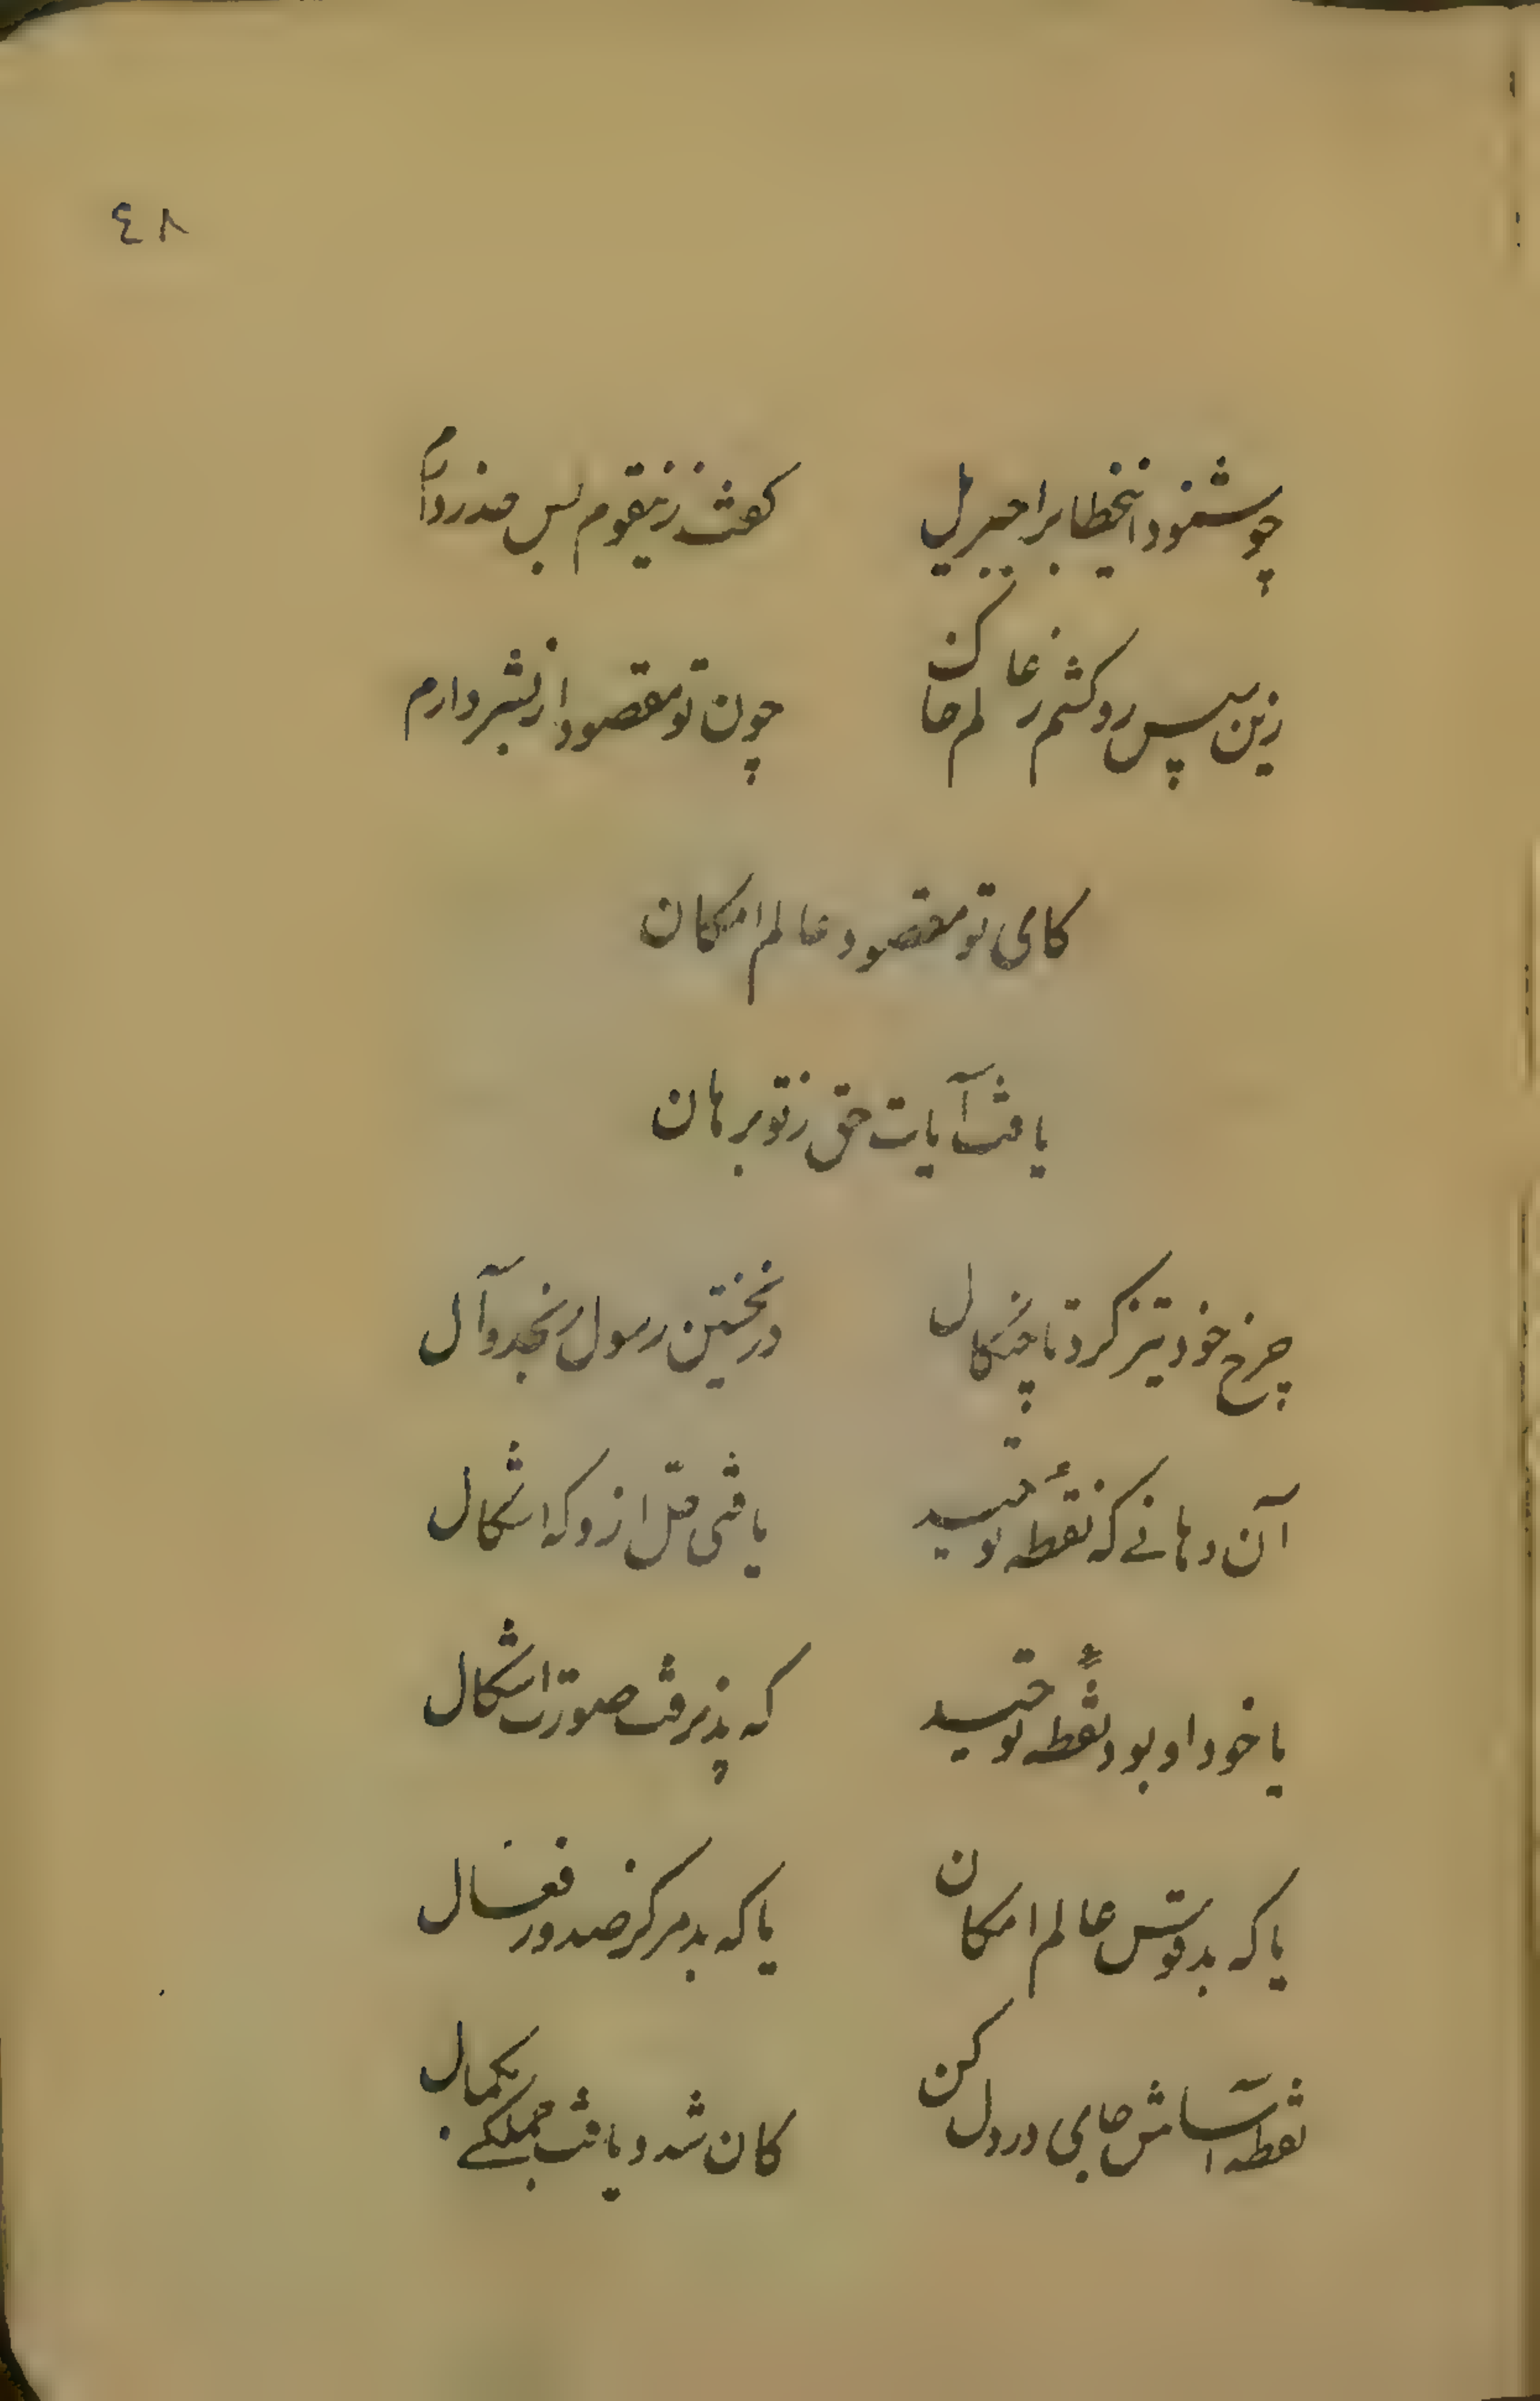 ٤٨
چو شنود اینخطابرا جبریل
گفت زینقوم بس حذر دارم
زین سپس رو کشم ز عالم خاک
چون تو مقصود از بشر دارم
کای تو مقصود عالم امکان
یافت آیات حق ز تو برهان
چرخ خود تیز کرد تا چنگال
در نخستین رسول
آن دهانے که نقطهٔ توحید
یافتی حل ازو که اشکال
یا خود او بود نقطهٔ توحید
که پذیرفت صورت اشکال
یا که بد قوس عالم امکان
یا که بد مرکز صدور فعال
نقطه آساش جای در دل کن
کان شد و یافت بملکے